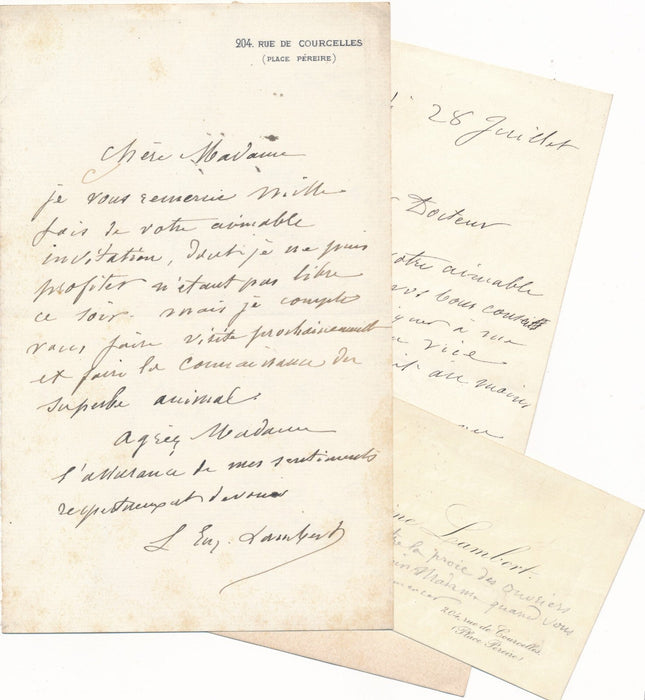 204. RUE DE COURCELLES
(PLACE PÉREIRE)
Chère Madame
je vous remercie mille
fois de votre aimable
invitation, dont je ne puis
profiter n'étant pas libre
ce soir. mais je compte
vous faire visite prochainement
et faire la connaissance du
superbe animal.
Agréez Madame
l'assurance de mes sentiments
respectueux et dévoués
L Eug. Lambert
28 Juillet
Docteur
votre aimable
vos bons conseils
a ma
vice
au moins
Lambert.
la proie des ouvriers
Madame quand vous
204, rue de Courcelles.
(Place Péreire)